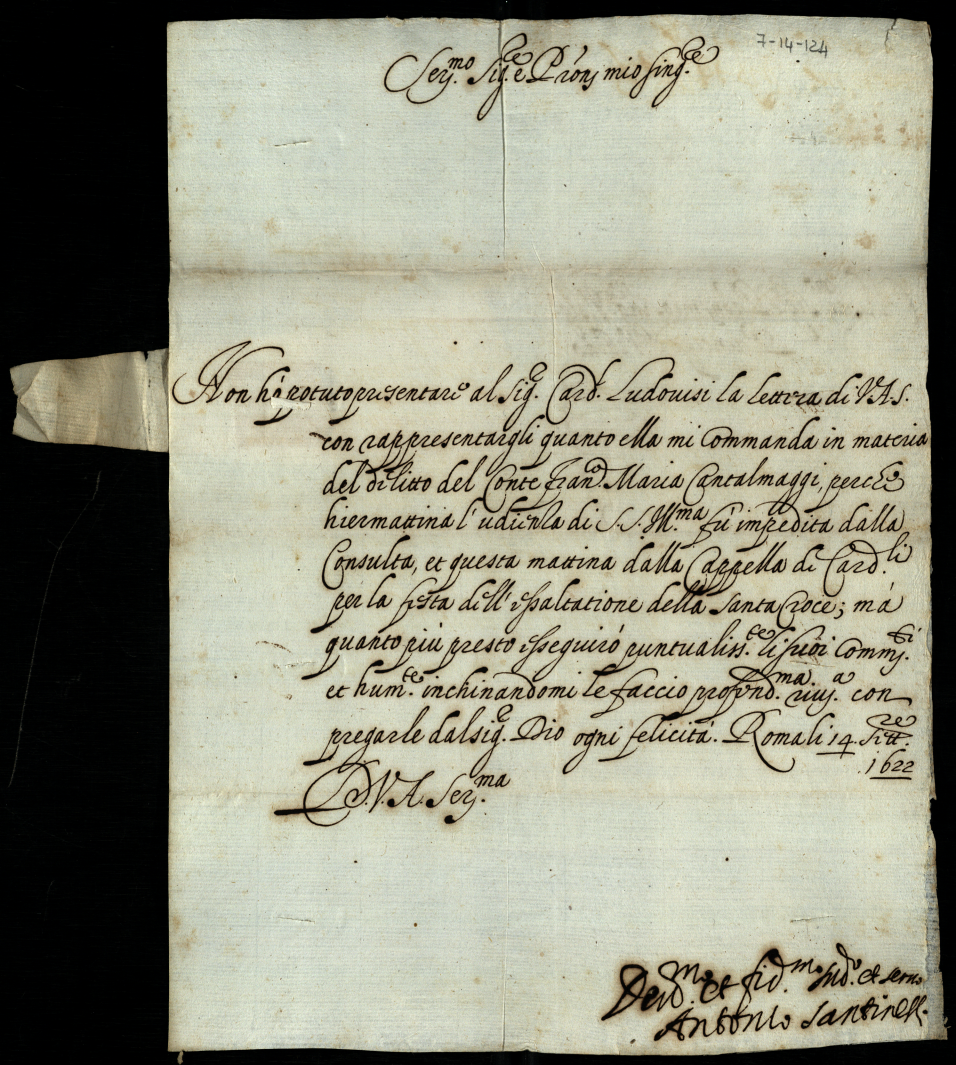 7-14-124
Ser.mo Sig.re e Pron mio sing.re
Non hò potuto presentare al Sig.r Card.l Ludovisi la lettera di V.A.S.
con rappresentargli quanto ella mi commanda in materia
del dilitto del Conte Fran.co Maria Cantalmaggi, perche
hiermattina l'udienza di S.S. Ill.ma fù impedita dalla
Consulta, et questa mattina dalla Cappella di Card.li
per la festa dell'essaltatione della Santa Croce; mà
quanto più presto esseguirò puntualiss.te li suoi Comm.ti
et hum.te inchinandomi le faccio profond.ma riv.a con
pregarle dal Sig.r Dio ogni felicità. Roma li 14. Sett.re
1622
D.V.A. Ser.ma
Dev.mo et fid.mo sud.o et servo
Antonio Santinelli